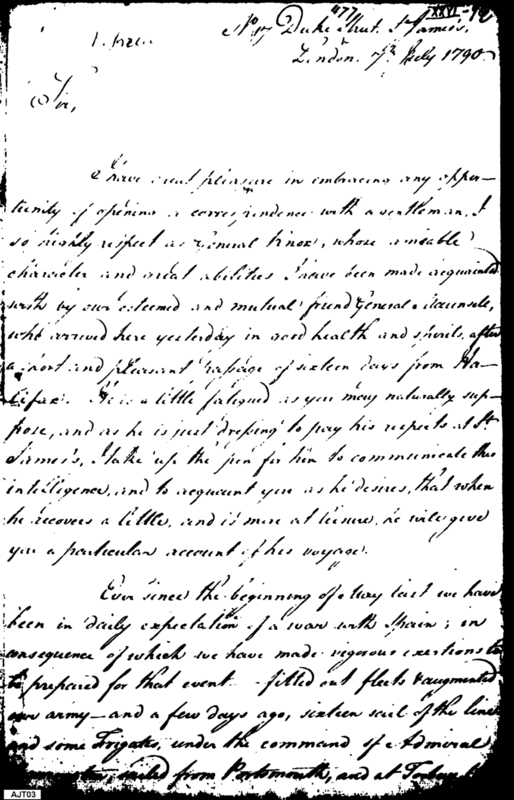 477 XXVI-
No 17 Duke Street St James's,
London 7th July 1790
Sir,
I have great pleasure in embracing any oppor-
tunity of opening a correspondence with a gentleman, I
so highly respect as General Knox, whose amiable
character and great abilities I have been made acquainted
with by our esteemed and mutual friend General Maunsell,
who arrived here yesterday in good health and spirits, after
a short and pleasant passage of sixteen days from Ha-
lifax. He is a little fatigued as you may naturally sup-
pose, and as he is just dressing to pay his respects at St
James's, I take up the pen for him to communicate this
intelligence, and to acquaint you as he desires, that when
he recovers a little, and is more at leisure, he will give
you a particular account of his voyage.
Ever since the beginning of May last we have
been in daily expectation of a war with Spain; in
consequence of which we have made vigorous exertions to
be prepared for that event - fitted out fleets & augmented
our army - and a few days ago, sixteen sail of the line
and some Frigates, under the command of Admiral
sailed from Portsmouth, and at Torbay
AJT03